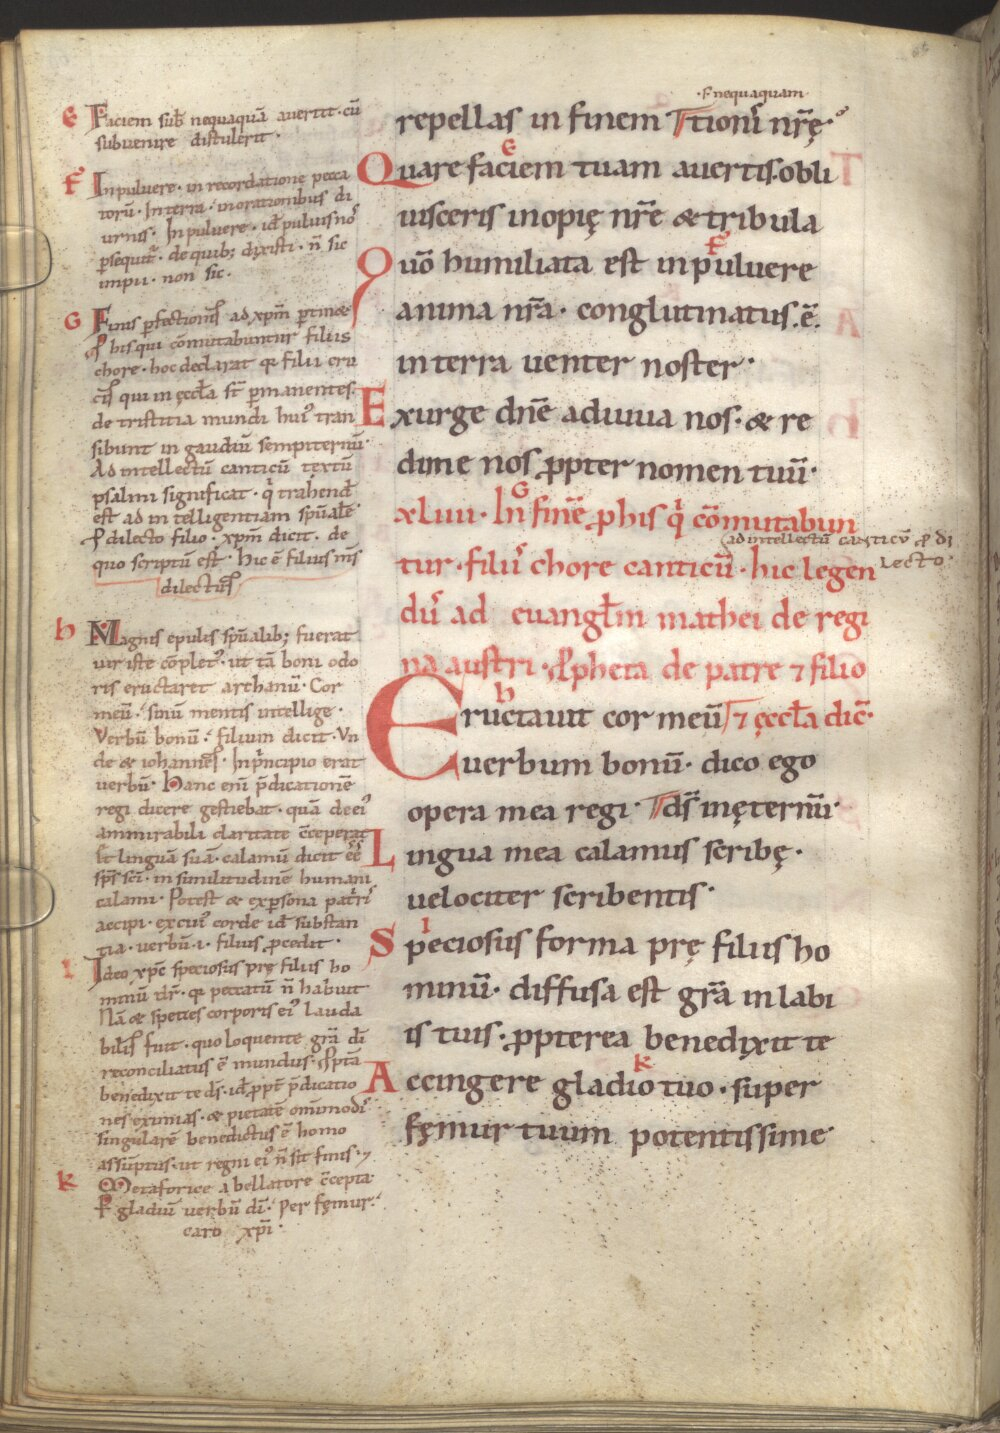 E Faciem sub̄ nequaquā auertit · cū
subuenire distulerit ·
F In puluere · in recordatione pecca
torū · In terra · in orationibus di
urnis · In puluere · id̄ puluis nō
persequit᷑ · de quib; dixisti · n̄ sic
impii · non sic ·
G Finis perfectionis ad xp̄m pertinæ
P his qui cōmutabuntur filiis
chore · hoc declarat qꝛ filii cru
cis qui in ęccl̄a st̄ permanentes ·
de tristitia mundi hui᷒ tran
sibunt in gaudiū sempiternū ·
Ad intellectū canticū textū
psalmi significat · q trahend̄
est ad intelligentiam spūalē
P dilecto filio · xp̄m dicit · de
quo scriptū est · hic ē filius m̄s
dilectus
h Magnis epulis spūalib; fuerat
uir iste cōplet᷒ · ut tā boni odo
ris eructaret archanū · Cor
meū · sinū mentis intellige ·
Verbū bonū · filium dicit · Vn
de & iohannes · In principio erat
uerbū · Hanc enī p̄dicationē
regi dicere gestiebat · quā de ei᷒
ammirabili claritate c̄ceperat
ł linguā suā · calamū dicit ēē
sp̄s sc̄i · in similitudinē humani
calami · Potest & ex persona patris
accipi · ex cui᷒ corde id̄ substan
tia · uerbū · i · filius ꝓcedit ·
I Ideo xp̄c speciosus pre filiis ho
minū dr̄ · qꝛ peccatū n̄ habuit
Nā & species corporis ei᷒ lauda
bilis fuit · quo loquente gr̄a dī
reconciliatus ē mundus · Ppt̄a
benedixit te ds̄ · id̄ ꝓpt̄ p̄dicatio
nes eximias · & pietatē omnimodā
singularē benedictus ē homo
assūptus · ut regni ei᷒ n̄ sit finis · ⁊
K Metaforice a bellatore c̄cepta
P gladiū uerbū dī · Per femur ·
caro xp̄i ·
· r̄ nequaquam
repellas in finem tionis nr̄ę
Quare faciem tuam auertis · obli
uisceris inopię nr̄e & tribula
Quō humiliata est in puluere
anima nr̄a · conglutinatus · ē ·
in terra uenter noster ·
Exurge dn̄e adiuua nos · & re
dime nos ꝓpter nomen tuū ·
xLiiii · In finē ꝓ his q cōmutabun
ad intellectū canticū P di
lecto
tur · filiis chore canticū · hic legen
dus ad euangl̄m mathei de regi
na austri · Ppheta de patre ⁊ filio
Eructauit cor meū ⁊ ęccl̄a dic̄ ·
uerbum bonū · dico ego
opera mea regi · ds̄ in ęternū ·
Lingua mea calamus scribę ·
uelociter scribentis ·
Speciosus forma prę filiis ho
minū · diffusa est gr̄a in labi
is tuis · ꝓpterea benedixit te
Accingere gladio tuo · super
fęmur tuum potentissime